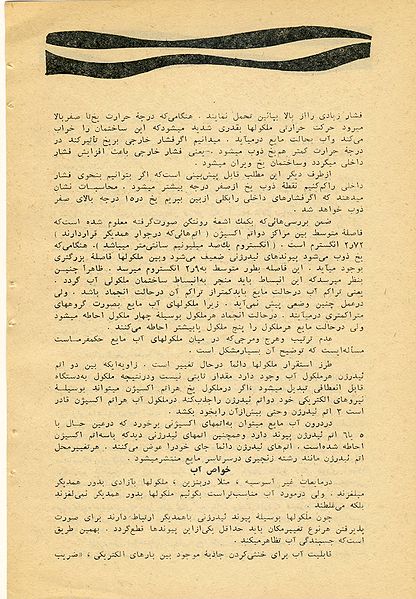 فشار زیادی رااز بالا بپائین تحمل نمایند . هنگامی‌که درجهٔ حرارت یخ‌تا صفربالا
میرود حرکت حرارتی ملکولها بقدری شدید میشودکه این ساختمان را خراب
می‌کند وآب بحالت مایع درمیآید . میدانیم اگرفشار خارجی بریخ تأثیرکند در
درجهٔ حرارت کمتر هم‌یخ ذوب میشود . یعنی فشار خارجی باعث افزایش فشار
داخلی میگردد وساختمان یخ ویران میشود .
ازطرف دیگر این مطلب قابل پیش‌بینی است‌که اگر بتوانیم بنحوی فشار
داخلی راکم‌کنیم نقطهٔ ذوب یخ ازصفر درجه بیشتر میشود . محاسبات نشان
میدهند که اگرفشارهای داخلی رابکلی ازبین ببریم یخ در۱۵ درجه بالای صفر
ذوب خواهد شد .
ضمن بررسی‌هائی‌که بکمك اشعهٔ رونتگن صورت‌گرفته معلوم شده است‌که
فاصلهٔ متوسط بین مراکز دواتم اکسیژن ( اتم‌هائی‌که درجوار همدیگر قراردارند )
۲٫۷۲ انگسترم است . ( انگستروم یك‌صد میلیونیم سانتی‌متر میباشد ). هنگامی‌که
یخ ذوب می‌شود پیوندهای ئیدرژنی ضعیف می‌شود وبین ملکولها فاصلهٔ بزرگتری
بوجود میآید . این فاصله بطور متوسط به۲٫۹ انگستروم میرسد . ظاهراً چنین
بنظر میرسدکه این انبساط باید منجر به‌انبساط ساختمان ملکولی آب گردد .
یعنی تراکم آب درحالت مایع بایدکمتراز تراکم آن درحالت انجماد باشد . ولی
درعمل چنین وضعی پیش نمی‌آید . زیرا ملکولهای آب مایع بصورت گروههای
متراکمتری درمیآیند . درحالت انجماد هرملکول بوسیلهٔ چهار ملکول احاطه میشود
ولی درحالت مایع هرملکول را پنج ملکول یابیشتر احاطه می‌کنند .
عدم ترتیب وهرج ومرجی‌که در میان ملکولهای آب مایع حکمفرماست
مسأله‌ایست که توضیح آن بسیارمشکل است .
طرز استقرار ملکولها دائماً درحال تغییر است . زاویه‌ایکه بین دو اتم
ئیدرژن هرملکول آب وجود دارد مقدار ثابتی نیست ودرنتیجه ملکول به‌دستگاه
قابل انعطافی تبدیل میشود . اگر درملکول یخ هراتم اکسیژن میتواند بوسیلهٔ
نیروهای الکتریکی خود دواتم ئیدرژن راجذب‌کند درملکول آب هراتم اکسیژن قادر
است ۳ اتم ئیدرژن وحتی بیش‌ازآن رابخود بکشد .
دردرون آب مایع میتوان به‌اتمهای اکسیژنی برخورد که درعین حال با
۵ یا ۶ اتم ئیدرژن پیوند دارد وهمچنین اتمهای ئیدرژنی دیدکه باسه‌اتم اکسیژن
احاطه شده‌است . اتم‌های ئیدرژن دائماً جای خودرا عوض می‌کنند . هرتغییرمحل
اتم ئیدرژن مانند رشته زنجیری درسرتاسر مایع منتشرمیشود .
خواص آب
درمایعات غیر آسوسیه ، مثلا دربنزین ، ملکولها بازادی بدور همدیگر
میلغزند . ولی درمورد آب مناسب‌تراست بگوئیم ملکولها بدور همدیگر نمی‌لغزند
بلکه می‌غلطند .
چون ملکولها بوسیلهٔ پیوند ئیدرژنی باهمدیگر ارتباط دارند برای صورت
پذیرفتن هرنوع تغییرمکان باید حداقل یکی‌ازاین پیوندها قطع‌گردد . بهمین طریق
است‌که چسبندگی آب تظاهرمیکند .
قابلیت آب برای خنثی‌کردن جاذبهٔ موجود بین بارهای الکتریکی ، «ضریب